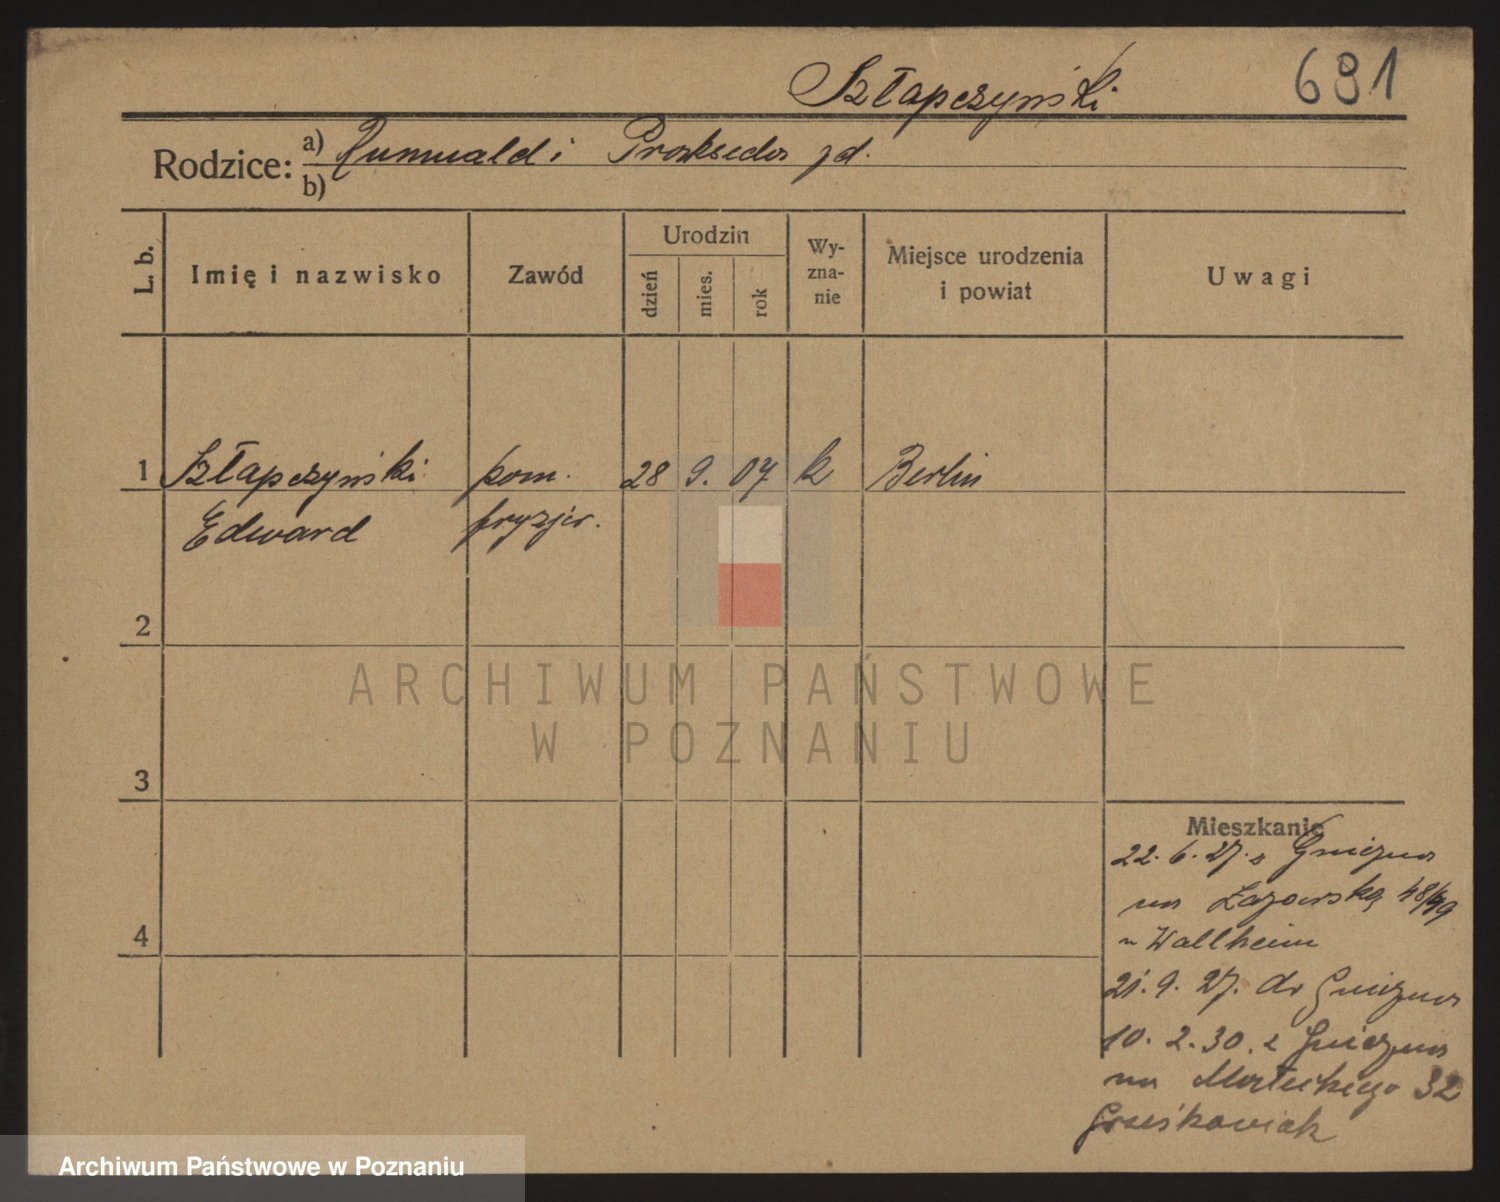 Szłapczyński 691
Rodzice: a) Rumuald i Prakseda
b)
L. b. Imię i nazwisko Zawód Urodzin dzień mies. rok Wy-zna-nie Miejsce urodzenia i powiat Uwagi
1 Szłapczyński pom. 28 9. 07 k Berlin
Edward fryzjer.
2
3
4
Mieszkanie
22. 6. 27. z Gniezna
na Łazarską
Wallheim
21. 9. 27. do Gniezna
10. 2. 30. z Gniezna
na Małeckiego 32
Grześkowiak
ARCHIWUM PAŃSTWOWE
W POZNANIU
Archiwum Państwowe w Poznaniu